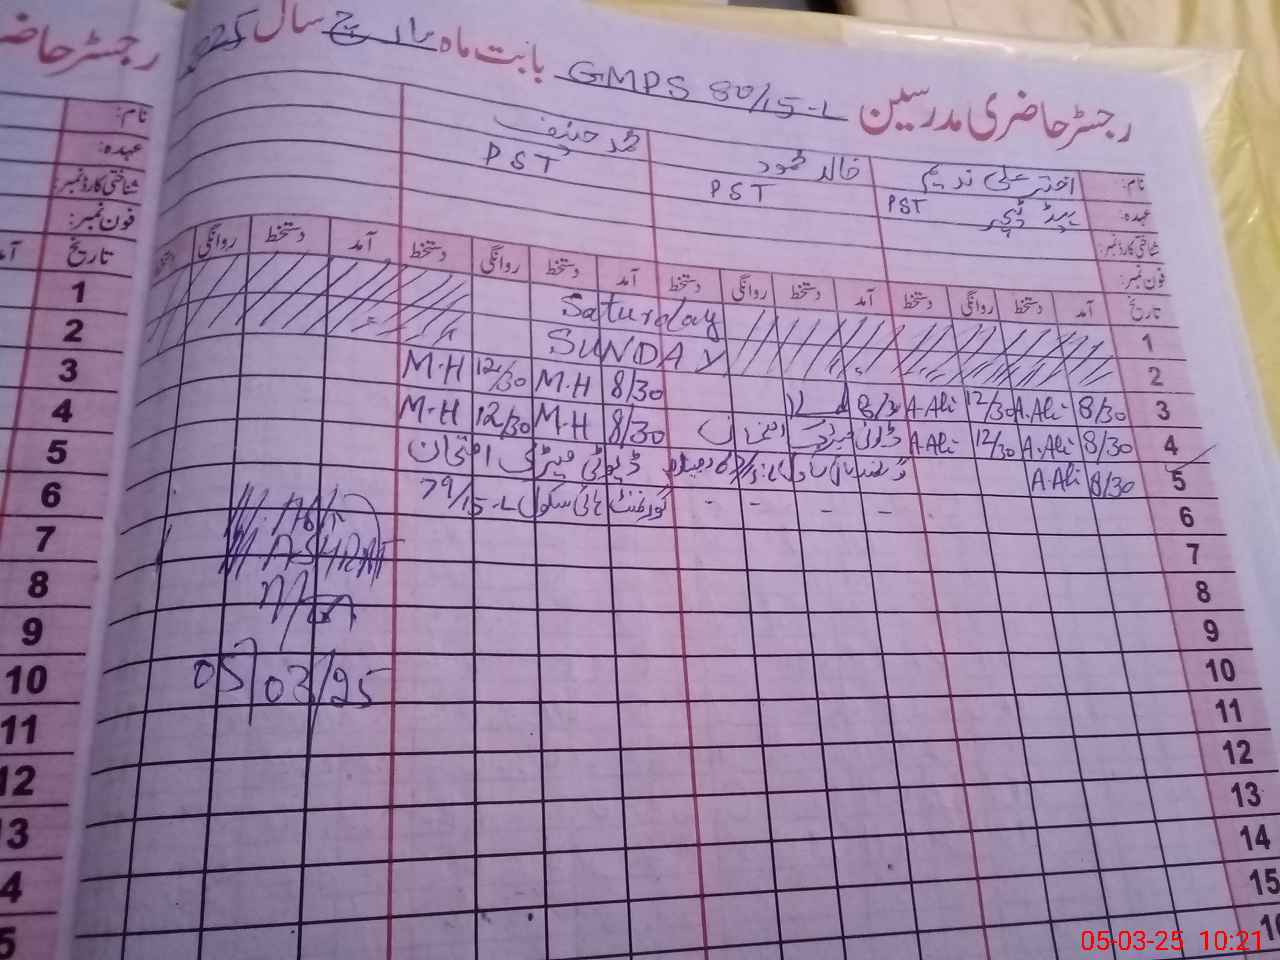 رجسٹر حاضری مدرسین GMPS 80/15-L بابت ماہ مارچ سال 2025
نام: اختر علی ندیم خالد محمود محمد حنیف
عہدہ: ہیڈ ٹیچر PST PST PST
شناختی کارڈ نمبر:
فون نمبر:
تاریخ آمد دستخط روانگی دستخط آمد دستخط روانگی دستخط آمد دستخط روانگی دستخط آمد دستخط روانگی
1 Saturday
2 SUNDAY
3 8/30 A.Ali 12/30 A.Ali 8/30 8/30 M.H 12/30 M.H
4 8/30 A.Ali 12/30 A.Ali ڈیوٹی میٹرک امتحان 8/30 M.H 12/30 M.H
5 8/30 A.Ali گورنمنٹ ڈیوٹی میٹرک امتحان
6 - - - - گورنمنٹ ہائی سکول 79/15-L
7 ASHRAF
8
9
10 05/03/25
11
12
13
14
15
16
رجسٹر حاضری
نام:
عہدہ:
شناختی کارڈ نمبر:
فون نمبر:
تاریخ
1
2
3
4
5
6
7
8
9
10
11
12
13
05-03-25 10:21